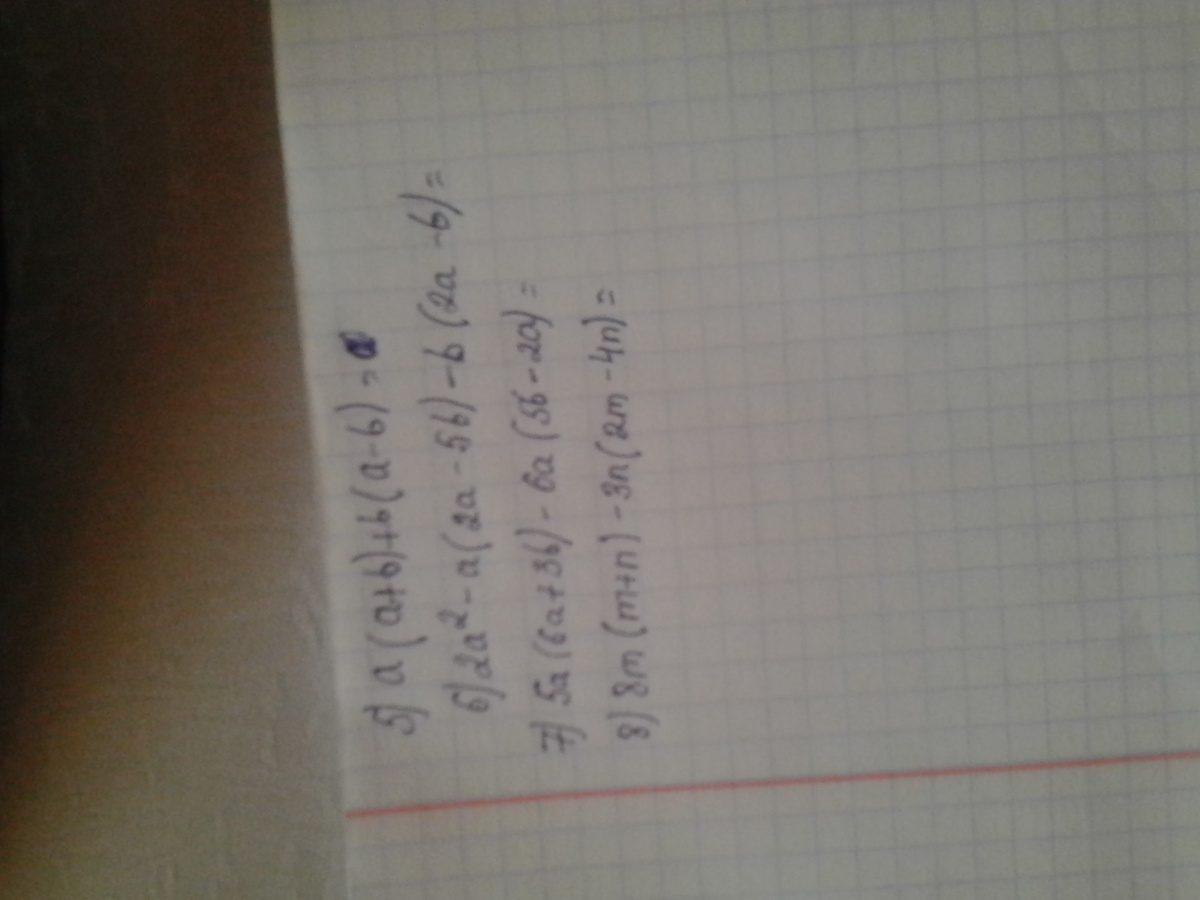 5) a(a+b)+b(a-b)=a
6) 2a²-a(2a-5b)-b(2a-b)=
7) 5a(6a+3b)-6a(5b-2a)=
8) 8m(m+n)-3n(2m-4n)=